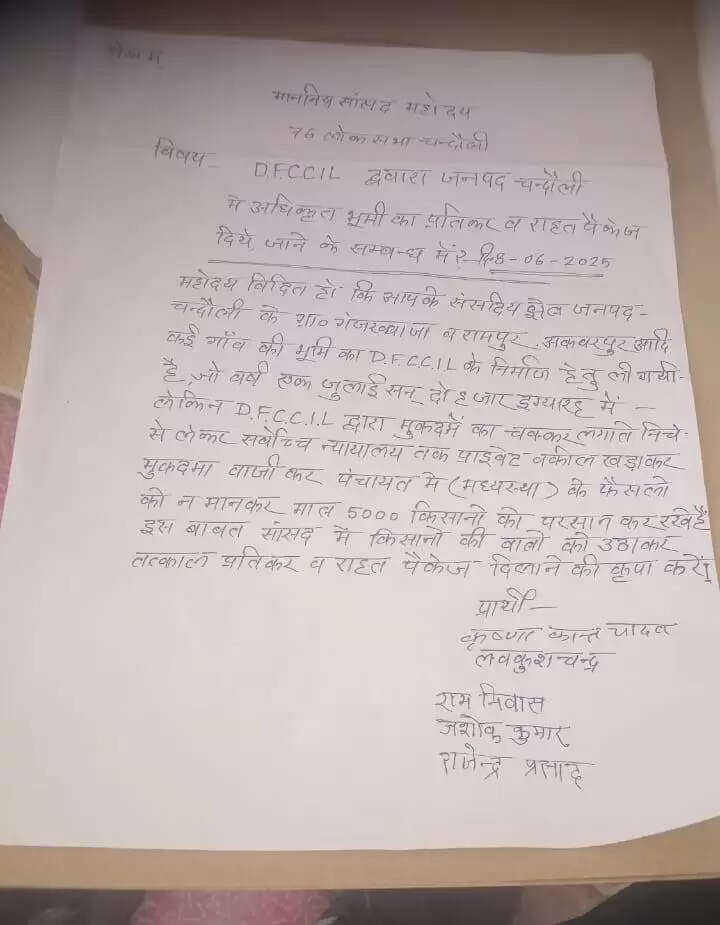 सेवा में
माननिय सांसद महोदय
76 लोक सभा चन्दौली
विषय- D.F.C.C.I.L द्वारा जनपद चन्दौली
मे अधिकृत भूमी का प्रतिकर व राहत पैकेज
दिये जाने के सम्बन्ध में 8-06-2025
महोदय विदित हो कि आपके संसदिय क्षेत्र जनपद-
चन्दौली के ग्रा० गंजख्वाजा व रामपुर, अकबरपुर आदि
कई गाँव की भूमि का D.F.C.C.I.L के निर्माण हेतु ली गयी-
है, जो वर्ष एक जुलाई सन् दो हजार इग्यारह में -
लेकिन D.F.C.C.I.L द्वारा मुकदमें का चक्कर लगाते निचे-
से लेकर सर्वोच्च न्यायालय तक प्राइवेट वकील खड़ाकर
मुकदमा बाजी कर पंचायत मे (मध्यस्था) के फैसलो
को न मानकर मात्र 5000 किसानो को परसान कर रखे हैं
इस बाबत सांसद में किसानो की बातो को उठाकर
तत्काल प्रतिकर व राहत पैकेज दिलाने की कृपा करें।
प्रार्थी-
कृष्णा कान्त यादव
लवकुश चन्द्र
राम निवास
अशोक कुमार
राजेन्द्र प्रसाद